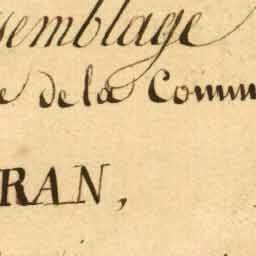 semblage
e de la Comm
RAN,